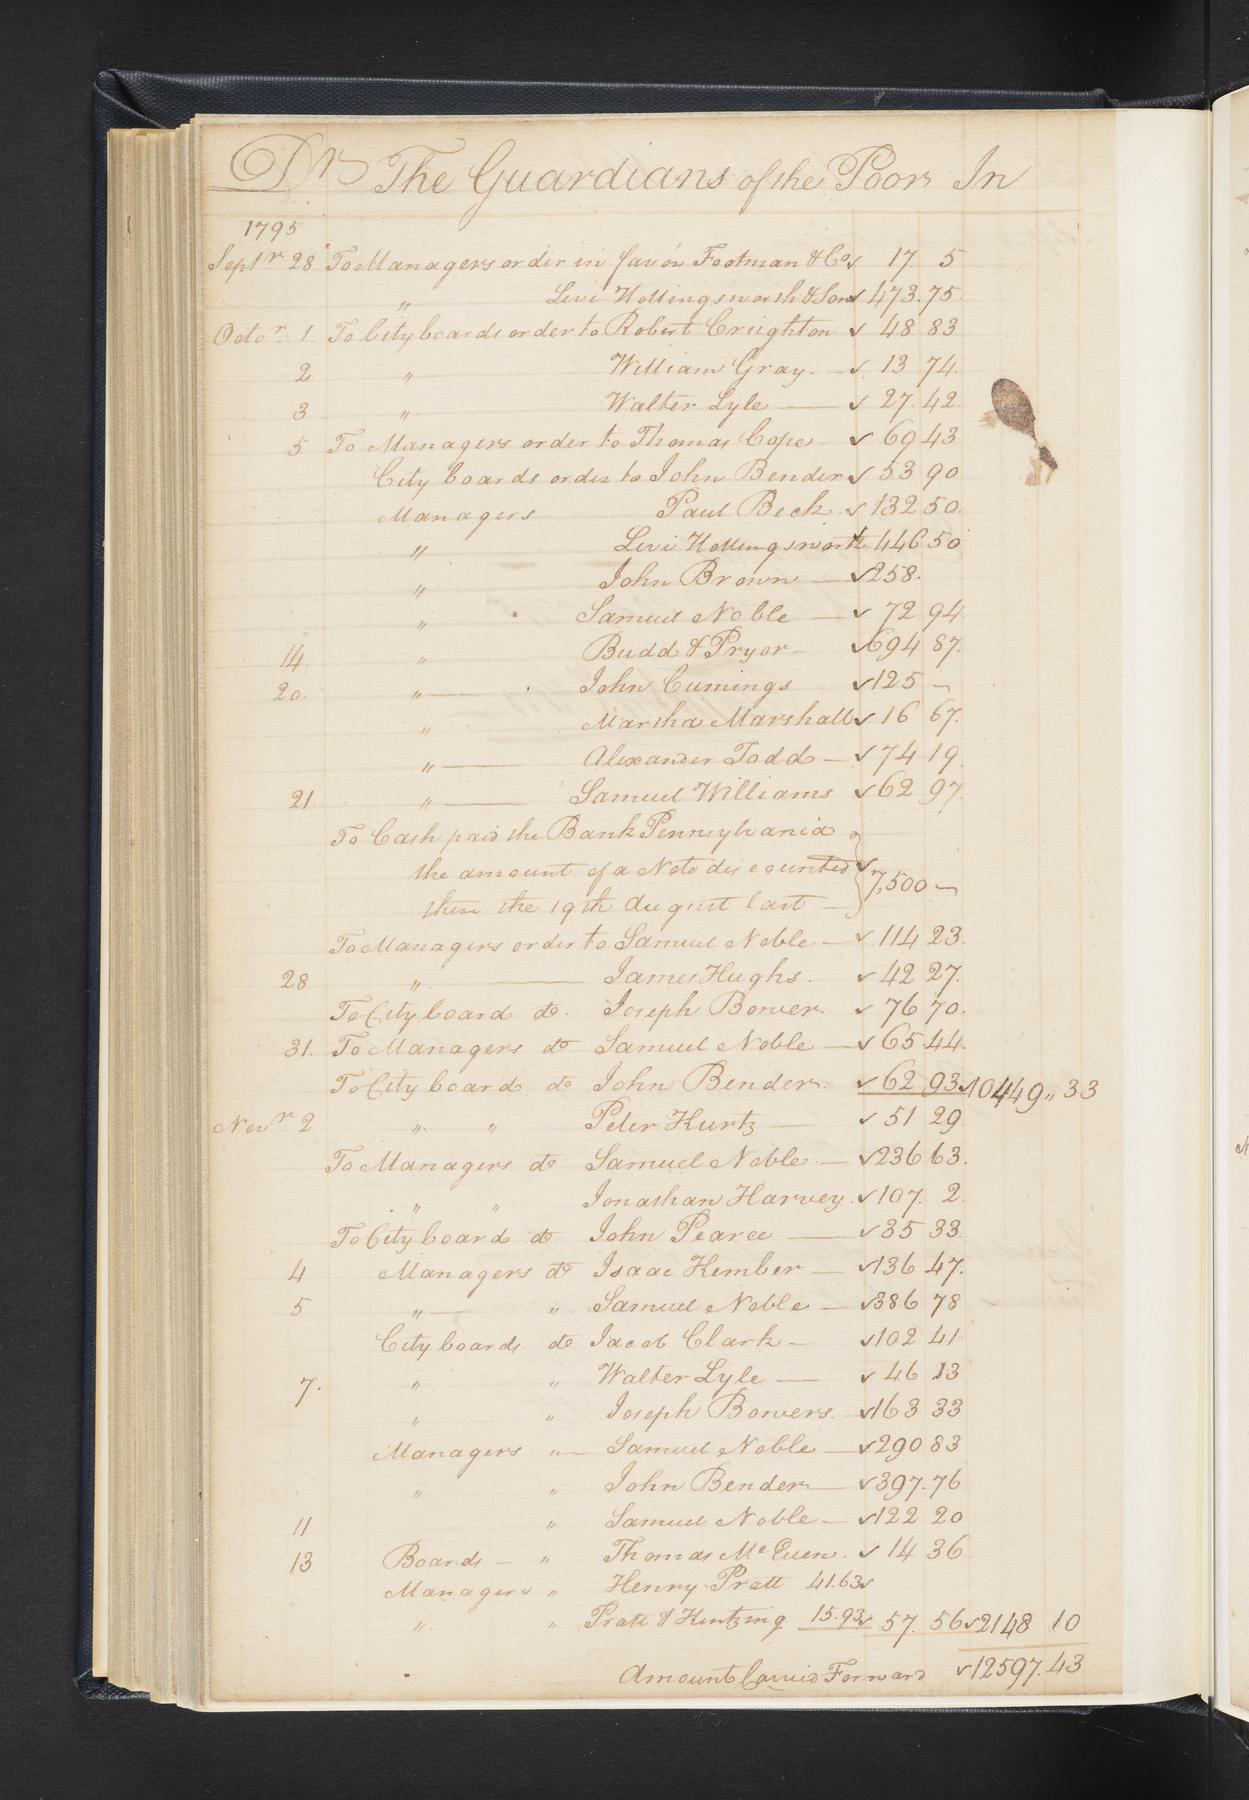 Drs The Guardians of the Poor In
1795
Septr 28 To Managers order in favor Footman & Co 17. 5
" Levi Hollingsworth & Son 473.75
Octor. 1. To City boards order to Robert Creighton 48 83
2 " William Gray. 13 74.
3 " Walter Lyle 27.42.
5 To Managers order to Thomas Cope 69 43
City boards order to John Bender 53 90
Managers Paul Beck. 132 50.
" Levi Hollingsworth 446 50
" John Brown 258.
" Samuel Noble 72 94
14. " Budd & Pryor 694 87.
20. " John Cumings 125 —
" Marsha Marshall 16 67.
" Alexander Todd 74 19
21. " Samuel Williams 62 97
To Cash paid the Bank Pennsylvania
the amount of a Note discounted 7,500 —
there the 19th August last
To Managers order to Samuel Noble 114 23.
28 " James Hughs. 42 27.
To City board do. Joseph Bower 76 70.
31. To Managers do Samuel Noble 65.44.
To City board do John Bender. 62 93 10449 " 33
Novr 2 " " Peter Kurtz 51 29
To Managers do Samuel Noble 236 63.
" " Jonathan Harvey 107. 2
To City board do John Pearce 35 33
4 Managers do Isaac Kember 136 47.
5 " " Samuel Noble 386 78
City boards do Jacob Clark 102 41
7. " " Walter Lyle 46 13
" " Joseph Bowers. 163 33
Managers " Samuel Noble 290 83
" " John Bender 397.76
11 " Samuel Noble 122 20
13 Boards " Thomas McEuen. 14 36
Managers " Henry Pratt 41.63
" " Pratt & Kintzing 15.93 57. 56 2148 10
Amount Carried Forward 12597.43